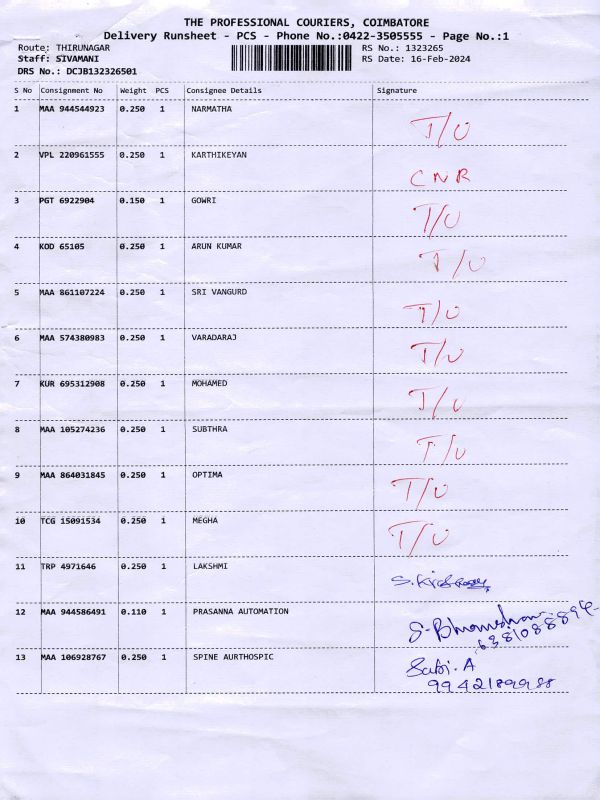 THE PROFESSIONAL COURIERS, COIMBATORE
Delivery Runsheet - PCS - Phone No.:0422-3505555 - Page No.:1
Route: THIRUNAGAR RS No.: 1323265
Staff: SIVAMANI RS Date: 16-Feb-2024
DRS No.: DCJB132326501
S No Consignment No Weight PCS Consignee Details Signature
1 MAA 944544923 0.250 1 NARMATHA T/U
2 VPL 220961555 0.250 1 KARTHIKEYAN CNR
3 PGT 6922904 0.150 1 GOWRI T/U
4 KOD 65105 0.250 1 ARUN KUMAR T/U
5 MAA 861107224 0.250 1 SRI VANGURD T/U
6 MAA 574380983 0.250 1 VARADARAJ T/U
7 KUR 695312908 0.250 1 MOHAMED T/U
8 MAA 105274236 0.250 1 SUBTHRA T/U
9 MAA 864031845 0.250 1 OPTIMA T/U
10 TCG 15091534 0.250 1 MEGHA T/U
11 TRP 4971646 0.250 1 LAKSHMI
12 MAA 944586491 0.110 1 PRASANNA AUTOMATION
13 MAA 106928767 0.250 1 SPINE AURTHOSPIC Sabi. A